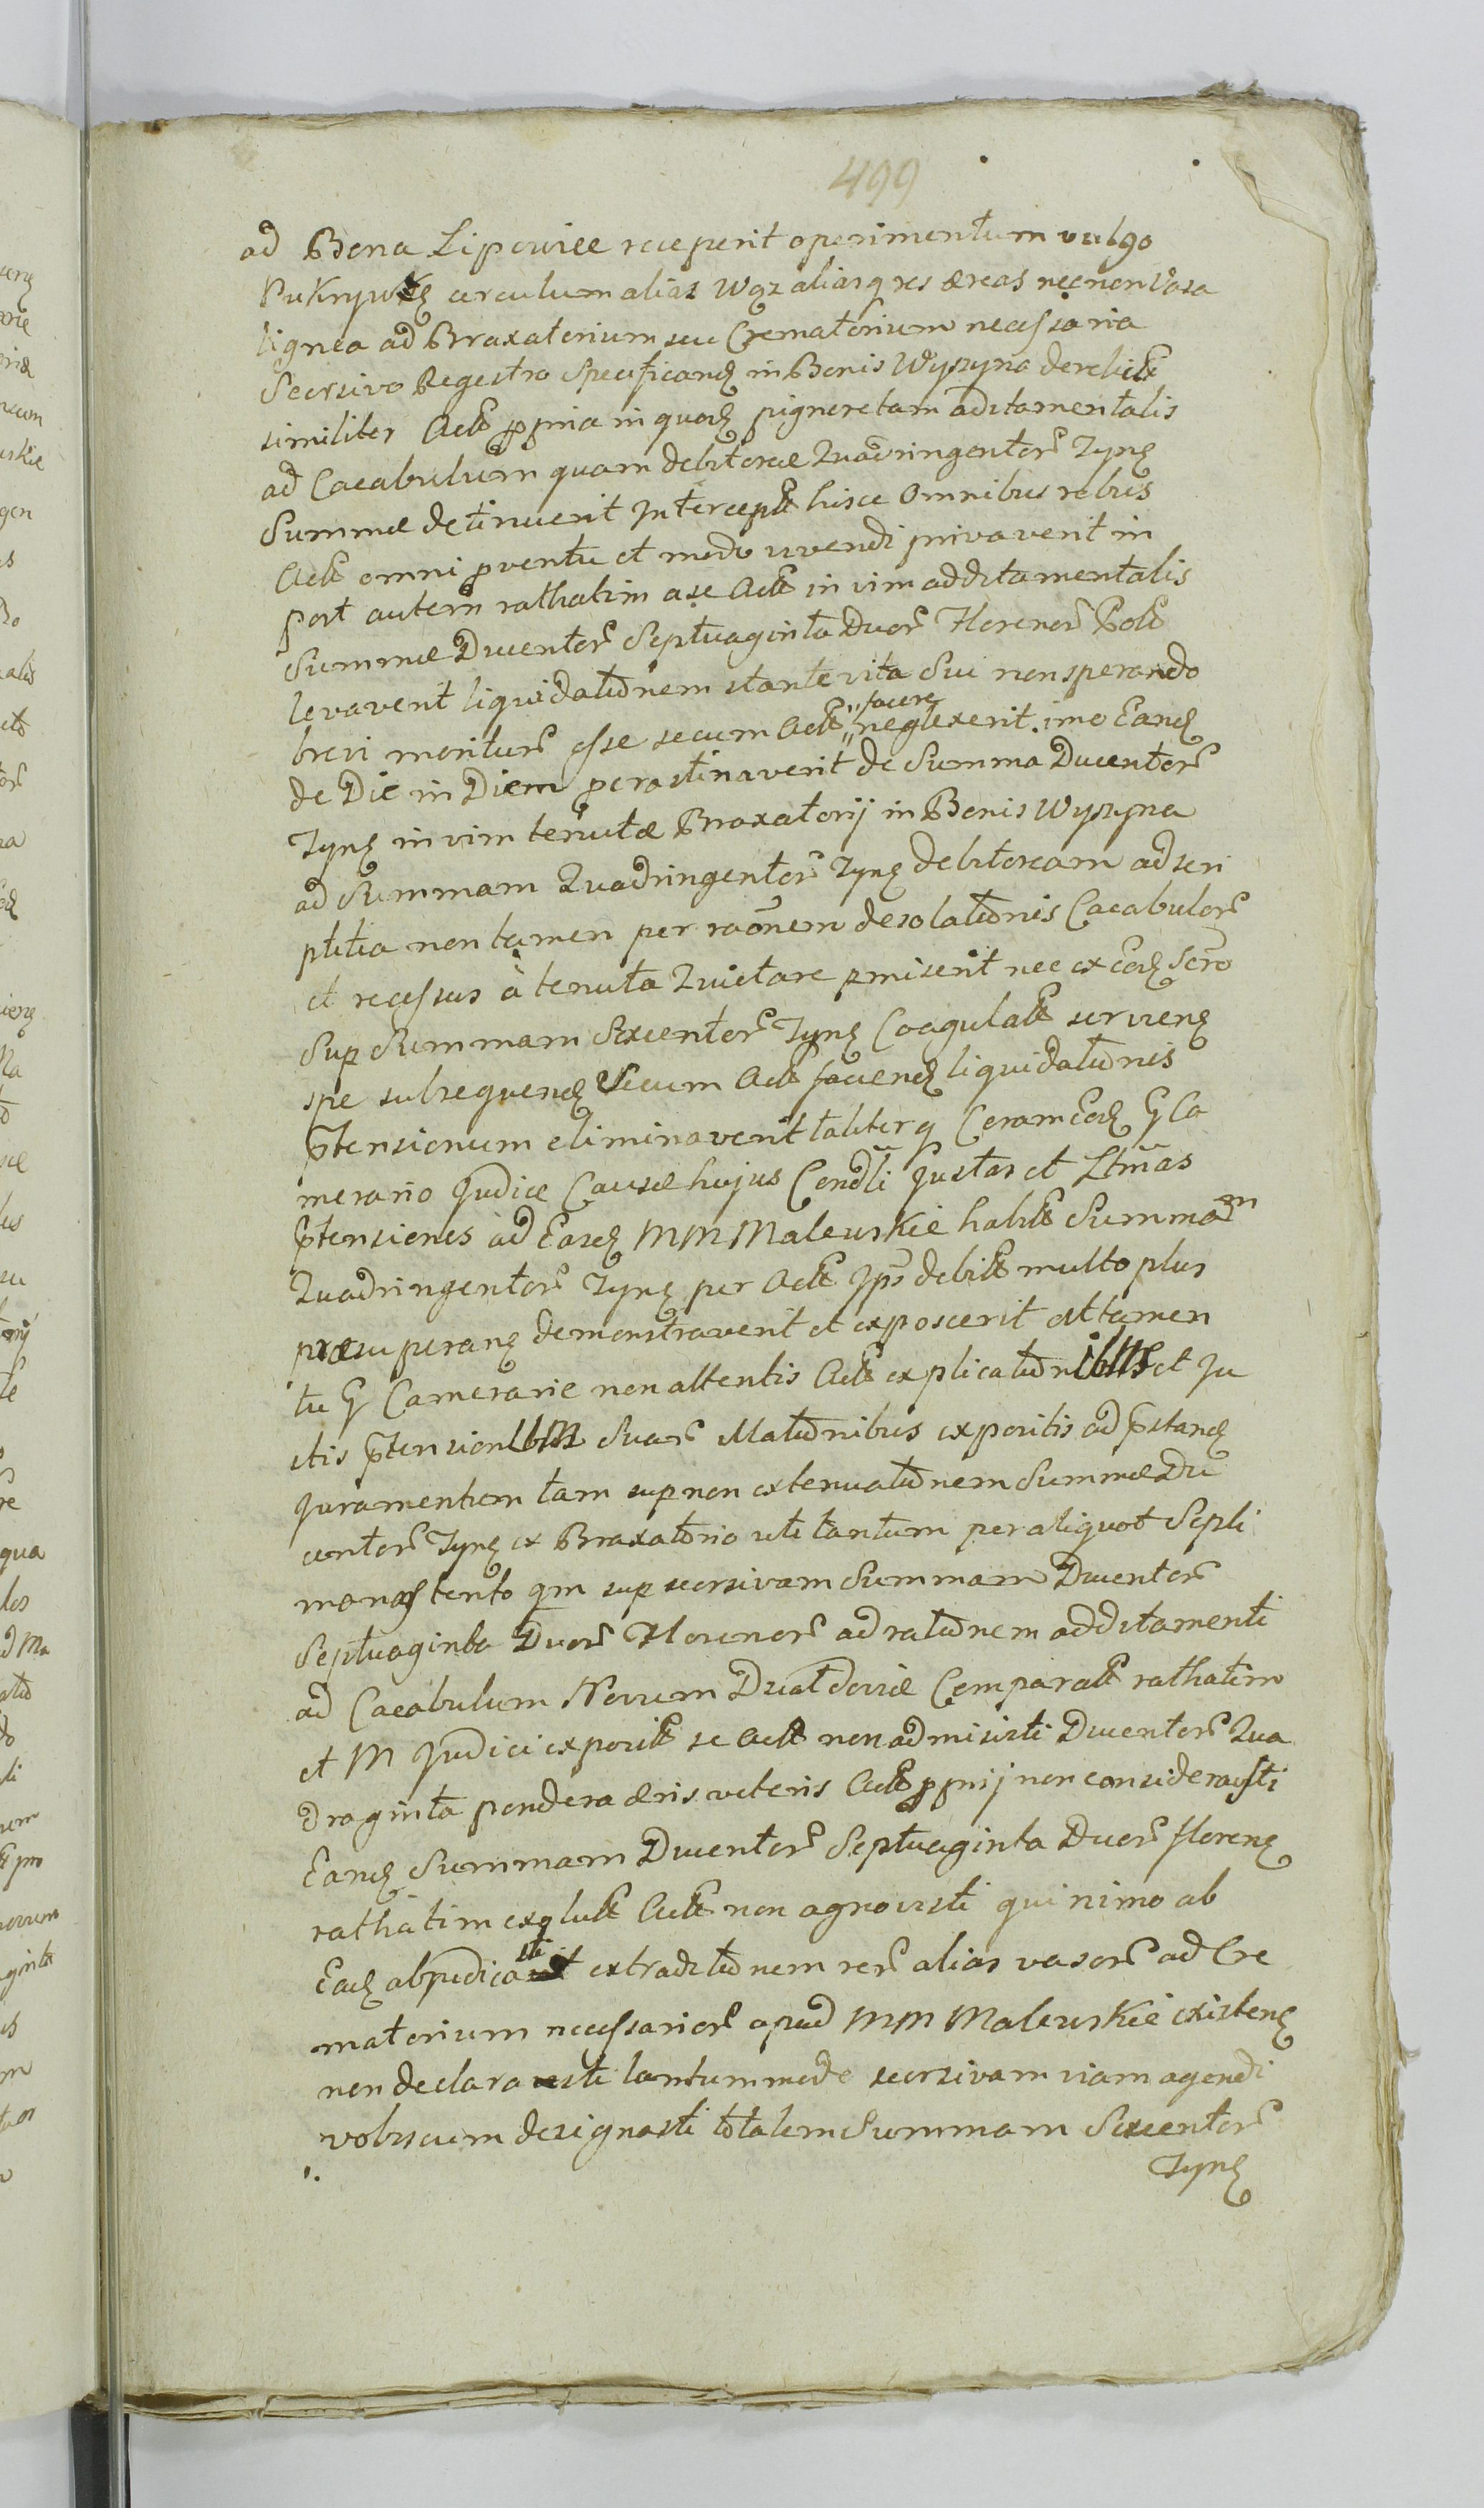 499
ad Bona Lipowice receperit operimentum vulgo
Pukrywkę circulum alias Wąz aliasq res æreas necnon Vasa
lignea ad Braxatorium seu Crematorium necessaria
Seorsivo Regestro Specificand in Bonis Wyszyna derelict
similiter Act ppria in quand pignoretam aditamentalis
ad Cacabulum quam debitoreæ Quadringentor Tynf
Summæ detinuerit Intercept hisce Omnibus rebus
Act omni pventu et modo vivendi privaverit in
sort autem rathatim a se Act in vim additamentalis
Summæ Ducentor Septuaginta Duor Florenor Pol
levaverit liquidationem stante vita Sui non sperando
brevi moritur esse secum Act facere neglexerit. imo Eand
de Die in Diem pcrastinaverit de Summa Ducentor
Tynf in vim tenutæ Braxatorij in Bonis Wyszyna
ad Summam Quadringentor Tynf debitoream adscri
ptitia non tamen per raonem desolationis Cacabulor
et recessus à tenuta Quietare pmiserit nec ex Eod Scro
Sup Summam Sexcentor Tynf Coagulat servieng
spe subsequend Secum Act faciend liquidationis
ptensionum eliminaverit taliterq Coram Eod G Ca
merario Judice Causæ hujus Condli Justas et Ltmas
ptensiones ad Eosd MM Malewskie habit Summam
Quadringentor Tynf per Act Ips debit multo plus
præsuperang demonstraverit et exposcerit attamen
tu G Camerarie non attentis Act explicationibus et Ju
stis ptensionibus Suar Illationibus expositis ad pstand
Juramentum tam sup non extenuationem Summæ Du
centor Tynf ex Braxatorio uti tantum per aliquot Septi
manas tento qm sup seorsivam Summam Ducentor
Septuaginta Duor Florenor ad rationem additamenti
ad Cacabulum Novum Comparat rathatim
et M Judici exposit se Act non admisisti Ducentor Qua
draginta pondera æris veteris Act pprij non considerasti
Eand Summam Ducentor Septuaginta Duor floreng
rathatim exolut Act non agnovisti quinimo ab
Ead abjudicasti extraditionem rer alias vasor ad Cre
matorium necessarior apud MM Malewskie existeng
non declarasti tantummodo seorsivam viam agendi
vobiscum designasti totalem Summam Sexcentor
Tynf